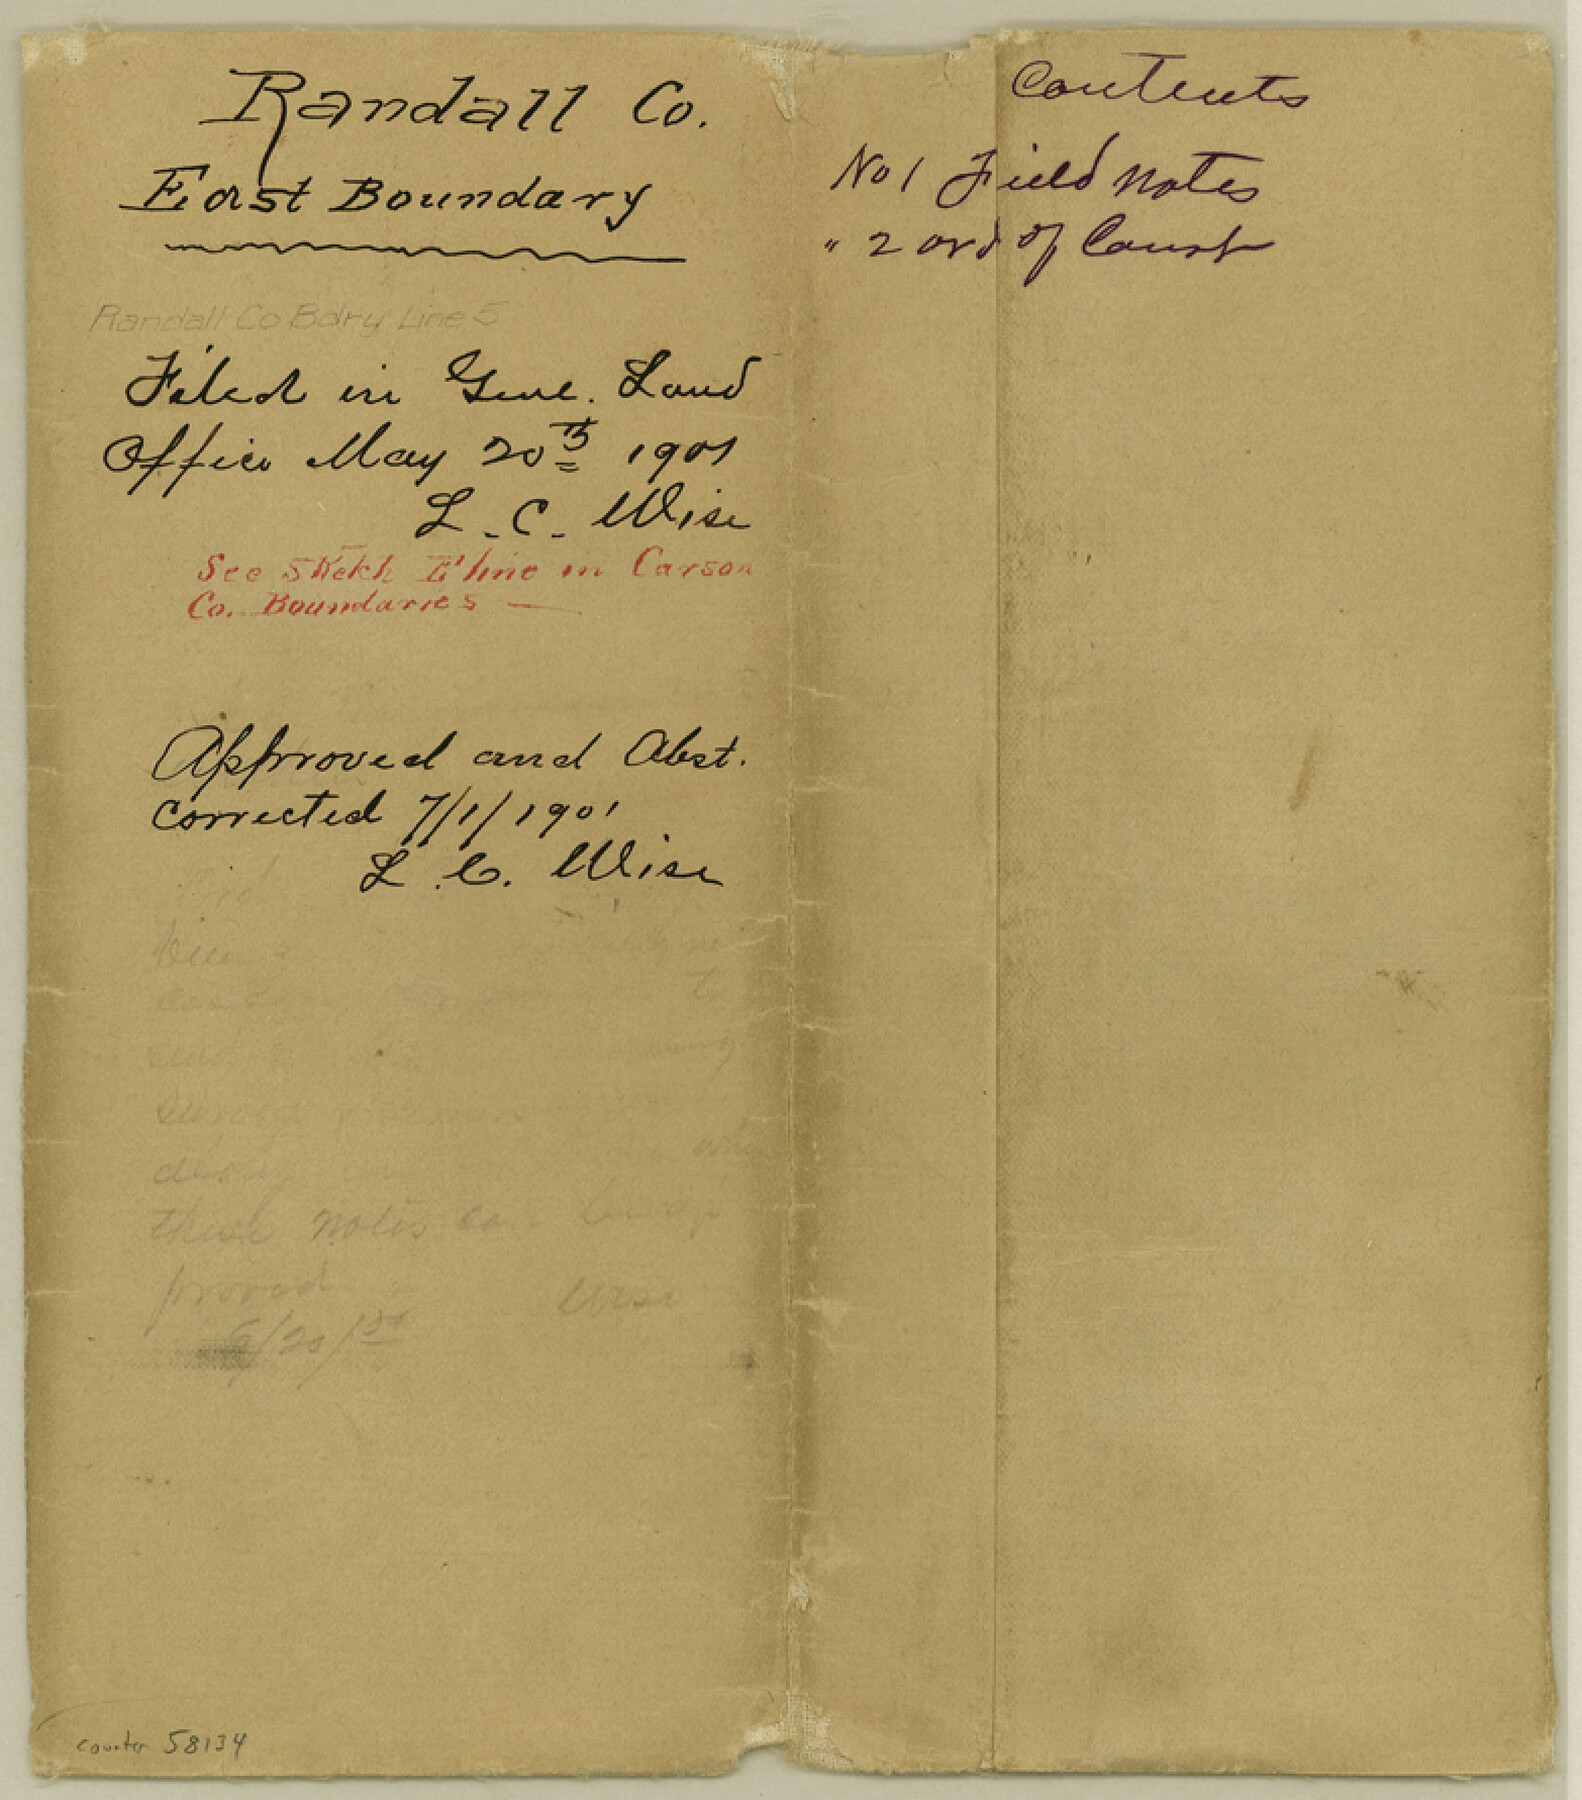 Randall Co.
East Boundary
Randall Co Bdry Line 5
Filed in Genl. Land
Office May 20th 1901
L. C. Wise
See Sketch E line in Carson
Co. Boundaries —
Approved and Abst.
corrected 7/1/1901
L. C. Wise
these notes can be ap
proved Wise
6/20/
counter 58134
Contents
No 1 Field Notes
" 2 ord of Court